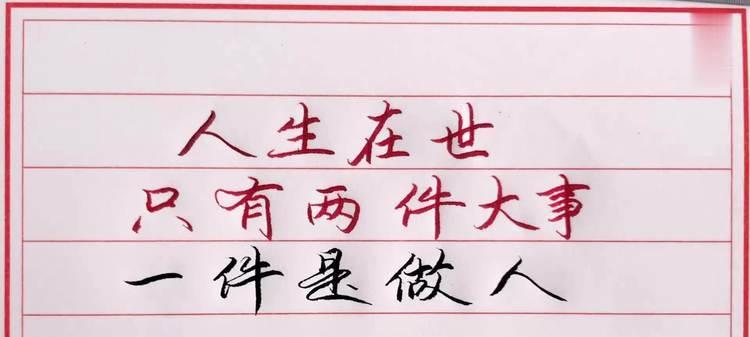 人生在世
只有两件大事
一件是做人